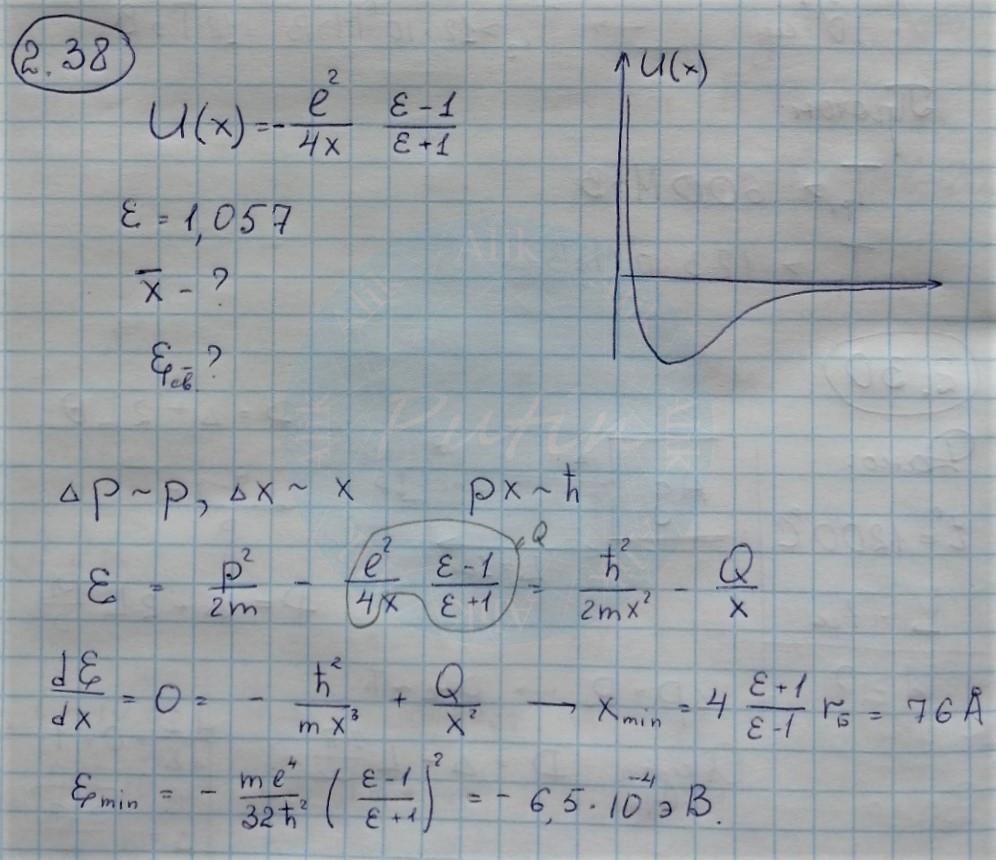 2.38
U(x)
U(x) = - e²/4x (ε-1)/(ε+1)
ε = 1,057
x̄ - ?
ℰсв - ?
Δp ~ p, Δx ~ x px ~ ħ
ℰ = p²/2m - e²/4x (ε-1)/(ε+1) = ħ²/2mx² - Q/x
Q
dℰ/dx = 0 = - ħ²/mx³ + Q/x² → x min = 4 (ε+1)/(ε-1) rБ = 76 Å
ℰmin = - me⁴/32ħ² ((ε-1)/(ε+1))² = - 6,5·10⁻⁴ эВ.